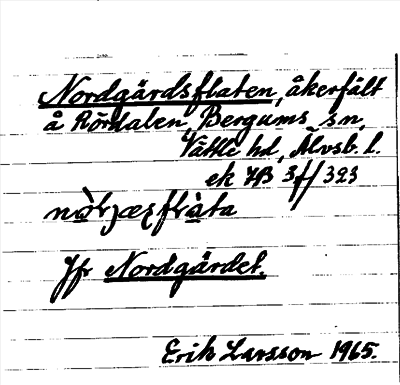 Nordgärdsflaten, åkerfält
å Rördalen, Bergums sn,
Vättle hd, Älvsb. l.
ek 7B 3f/323
Jfr Nordgärdet.
Erik Larsson 1965.